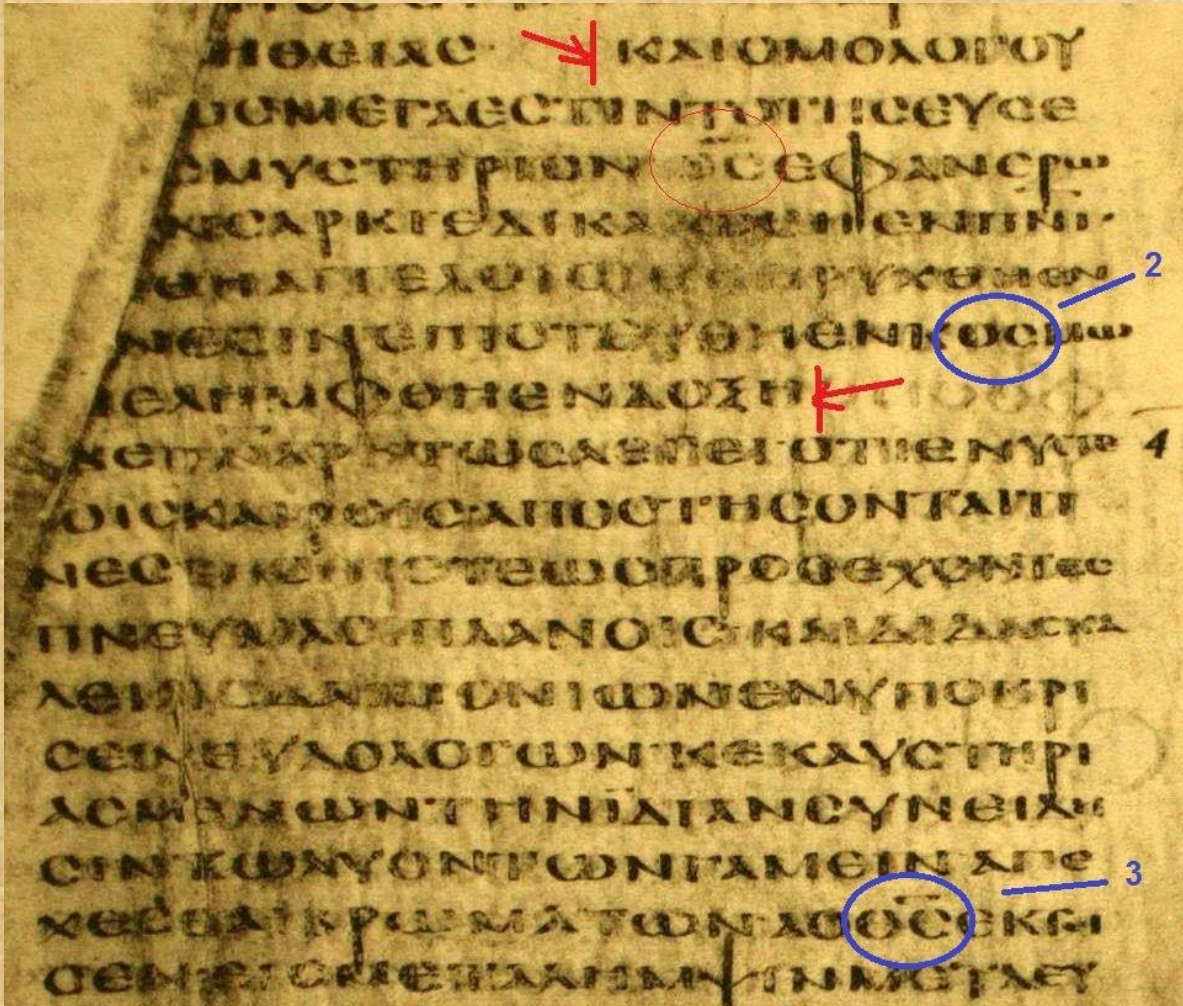 ΗΘΕΙΑϹ· ΚΑΙΟΜΟΛΟΓΟΥ
ϹΜΕΓΑΕϹΤΙΝΤΟΤΗϹΕΥϹΕ
ϹΜΥϹΤΗΡΙΟΝΘ̅Ϲ̅ΕΦΑΝΕΡΩ
ΝϹΑΡΚΙΕΔΙΚΑΙΩΘΗΕΝΠΝΙ·
ΘΗΑΓΓΕΛΟΙϹΕΚΗΡΥΧΘΗΕΝ
ΝΕϹΙΝΕΠΙϹΤΕΥΘΗΕΝΚΟϹΜΩ 2
ΝΕΛΗΜΦΘΗΕΝΔΟΞΗ
ΠΝΑΡΗΤΩϹΛΕΓΕΙΟΤΙΕΝΥϹΤΕ 4
ΟΙϹΚΑΙΡΟΙϹΑΠΟϹΤΗϹΟΝΤΑΙΤΙ
ΝΕϹΤΗϹΠΙϹΤΕΩϹΠΡΟϹΕΧΟΝΤΕϹ
ΠΝΕΥΜΑϹΙΠΛΑΝΟΙϹΚΑΙΔΙΔΑϹΚΑ
ΛΕΙΑΙϹΔΑΙΜΟΝΙΩΝΕΝΥΠΟΚΡΙ
ϹΕΙΨΕΥΔΟΛΟΓΩΝΚΕΚΑΥϹΤΗΡΙ
ΑϹΜΕΝΩΝΤΗΝΪΔΙΑΝϹΥΝΕΙΔΗ
ϹΙΝΚΩΛΥΟΝΤΩΝΓΑΜΕΙΝΑΠΕ 3
ΧΕϹΘΑΙΒΡΩΜΑΤΩΝΑΟΘ̅Ϲ̅ΕΚΤΙ
ϹΕΝΕΙϹΜΕΤΑΛΗΜΨΙΝΜΕΤΑΕΥ